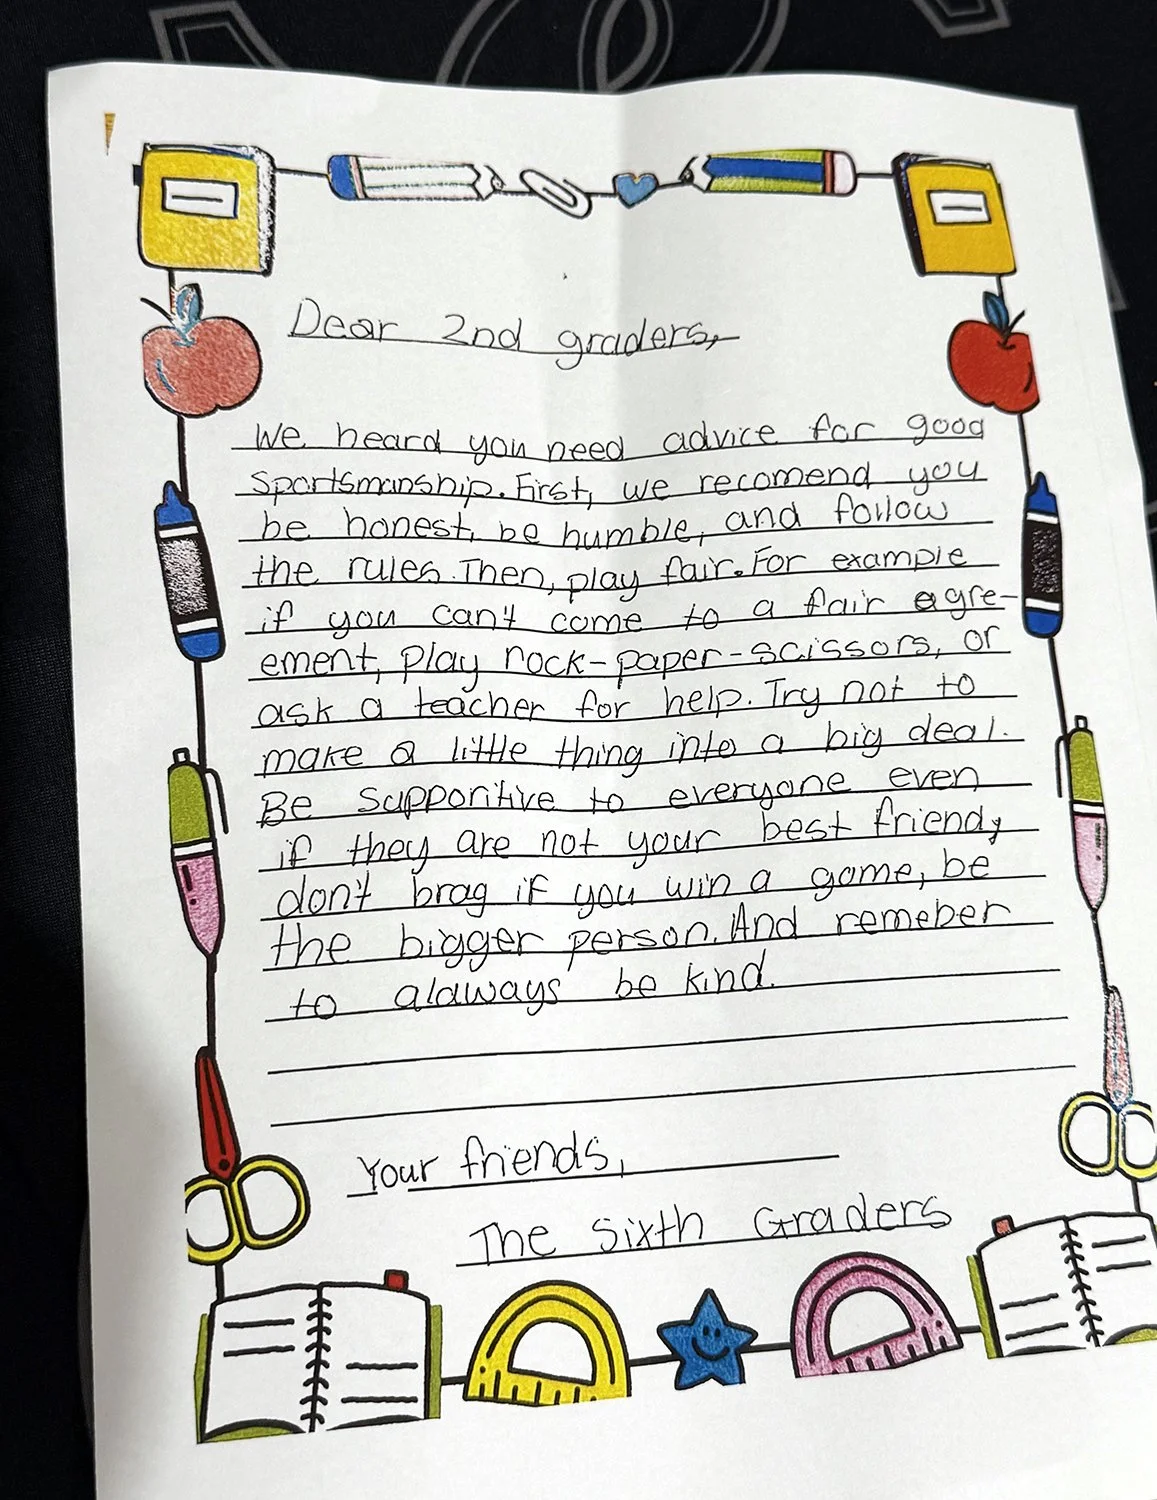 Dear 2nd graders,
We heard you need advice for good
Sportsmanship. First, we recomend you
be honest, be humble, and follow
the rules. Then, play fair. For example
if you can't come to a fair agre-
ement, play rock-paper-scissors, or
ask a teacher for help. Try not to
make a little thing into a big deal.
Be supporitive to everyone even
if they are not your best friend,
don't brag if you win a game, be
the bigger person. And remeber
to aláways be kind.
Your friends,
The Sixth Graders